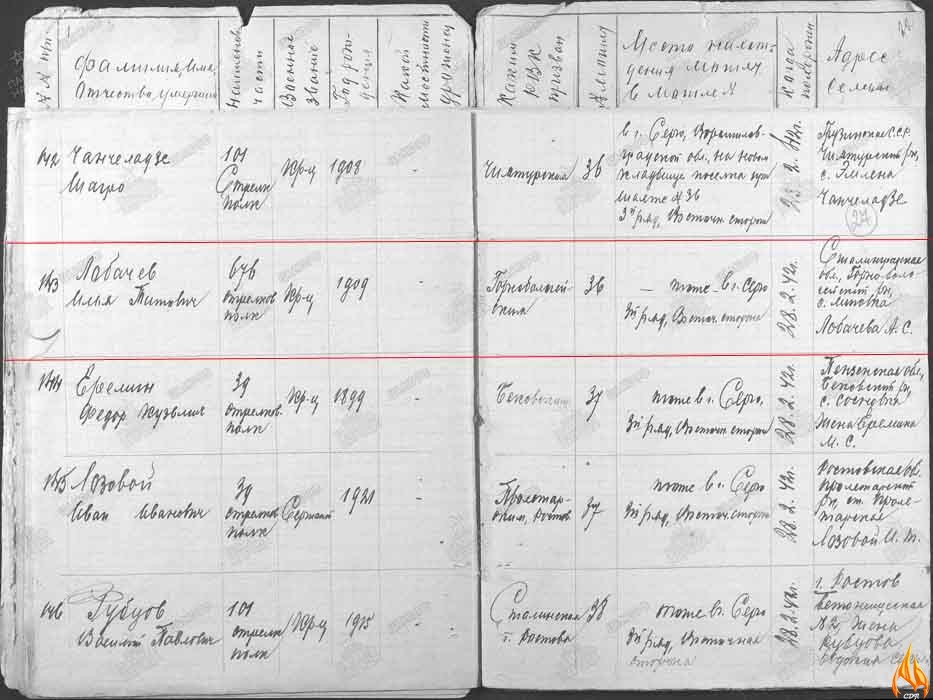 Фамилия, Имя,
Отчество, умершего
Наименов.
части
Военное
звание
Год рож-
дения
Какой
местности
уроженец
Каким
РВК
призван
№ могилы
Место нахож-
дения могилы
Когда
похоронен
Адрес
семьи
22
142
Чанчеладзе
Шагро
101
Стрелк
полк
Кр-ц
1903
-
Чиятурским
36
в г. Серго, Ворошилов-
градской обл, на новом
кладбище поселка
шахте № 36
3й ряд, Восточн. сторон
23.2.42г.
Грузинская ССР
Чиятурский рн,
Чанчеладзе
27
143
Лобачев
Илья Титович
676
стрелков
полк
Кр-ц
1909
-
36
— тоже - в г. Серго
3й ряд, Восточ. сторона
28.2.42г.
Сталинградская
обл,
Лобачева А. С.
144
Еремин
Федор Кузьмич
39
стрелков.
полк
Кр-ц
1899
-
Бековским
37
тоже в г. Серго,
3й ряд, Восточн сторон
28.2.42г.
Пензенская обл,
Бековский рн,
с. Сосновка
Жена Еремина
М. С.
145
Лозовой
Иван Иванович
39
стрелков
полк
Сержант
1921
-
Пролетар-
ским, Ростов
37
тоже в г. Серго
3й ряд, Восточ. сторон
28.2.42г.
Ростовская об.
Пролетарский
рн, ст. Проле-
тарская
Лозовой И. Т.
146
Рубцов
Василий Павлович
101
стрелк
полк
Кр-ц
1915
-
Сталинская
г. Ростова
38
тоже в г. Серго
3й ряд, Восточная
сторона
28.2.42г.
г. Ростов
№2 Жена
CDR